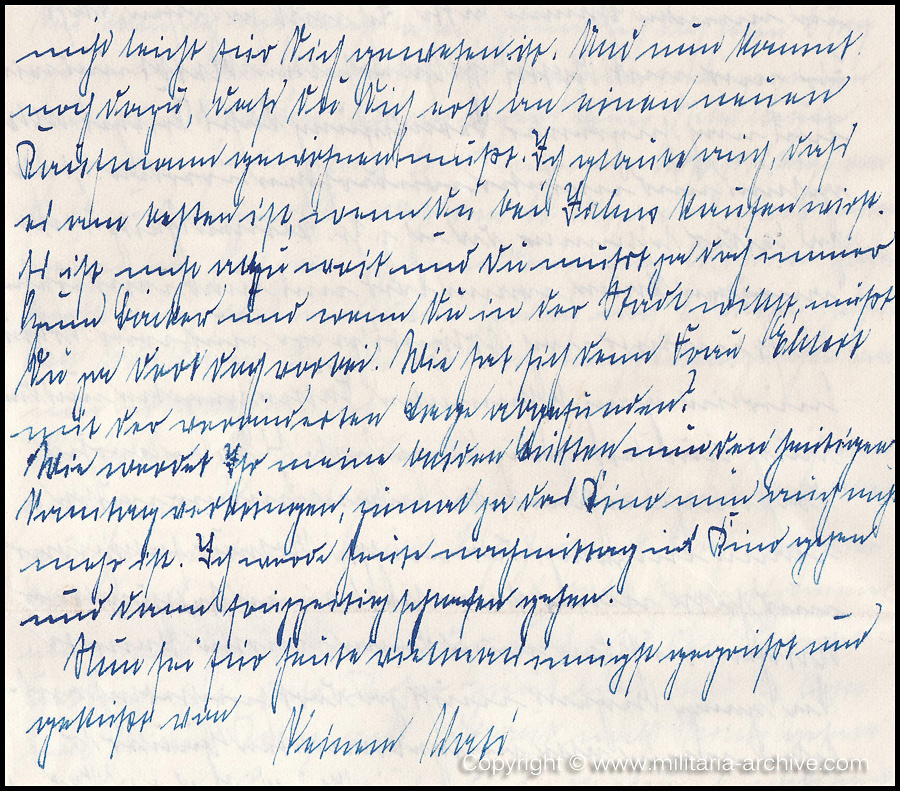 nicht leicht für Dich gewesen ist. Und nun kommt
noch dazu, daß Du Dich erst an einen neuen
Kaufmann gewöhnen mußt. Ich glaube auch, daß
es am besten ist wenn Du bei kaufen wirst.
Es ist nicht allzu weit und Du mußt ja doch immer
zum Bäcker und wenn Du in der Stadt willst, mußt
Du ja dort doch vorbei. Wie hat sich denn Frau
mit der veränderten Lage abgefunden?
Wie werdet Ihr meine beiden nun den heutigen
Sonntag verbringen, zumal ja das Kino nun auch nicht
mehr ist. Ich werde heute nachmittag ins Kino gehen
und dann frühzeitig schlafen gehen.
Nun sei für heute vielmals innigst gegrüßt und
geküßt von Deinem
Copyright © www.militaria-archive.com